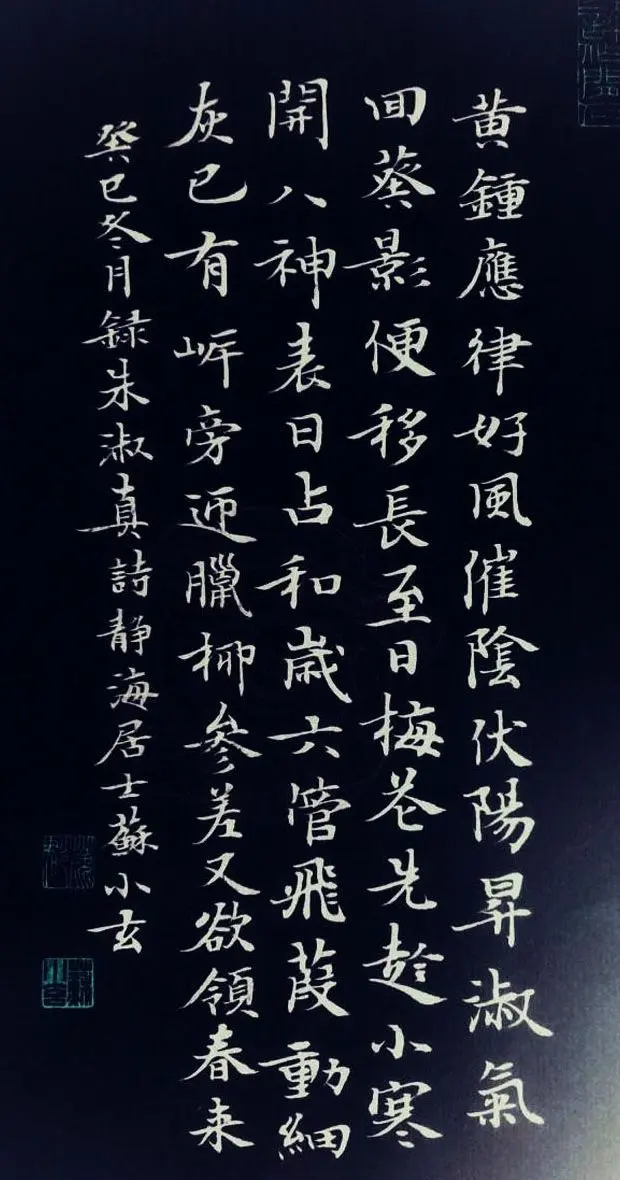 黄鍾應律好風催陰伏陽昇淑氣
回葵影便移長至日梅花先趁小寒
開八神表日占和歲六管飛葭動細
灰已有岍旁迎臘柳參差又欲領春来
癸巳冬月録朱淑真詩静海居士蘇小玄